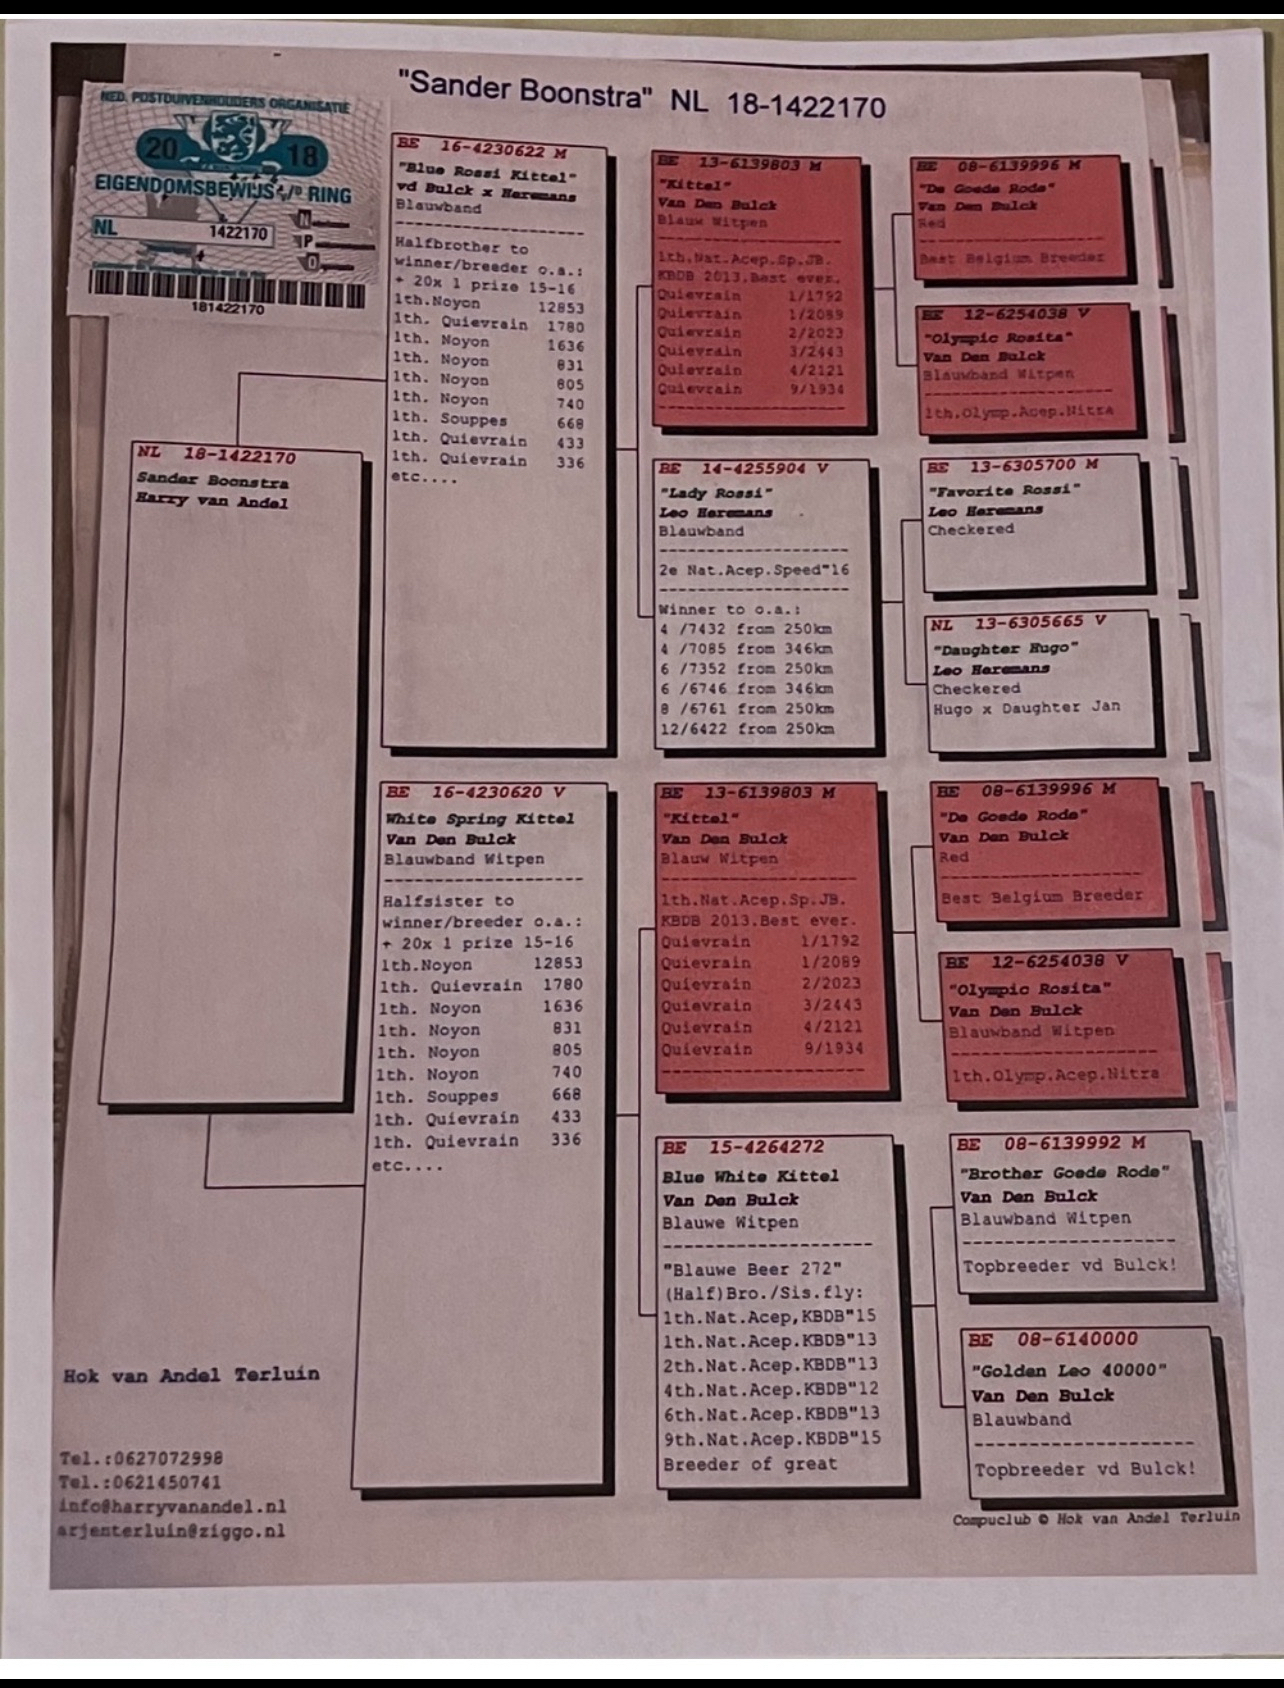 "Sander Boonstra" NL 18-1422170
NED. POSTDUIVENHOUDERS ORGANISATIE
20 18
EIGENDOMSBEWIJS v/d RING
NL 1422170
N
P
O
181422170
NL 18-1422170
Sander Boonstra
Harry van Andel
BE 16-4230622 M
"Blue Rossi Kittel"
vd Bulck x Heremans
Blauwband
--------------------
Halfbrother to
winner/breeder o.a.:
+ 20x 1 prize 15-16
1th.Noyon 12853
1th. Quievrain 1780
1th. Noyon 1636
1th. Noyon 831
1th. Noyon 805
1th. Noyon 740
1th. Souppes 668
1th. Quievrain 433
1th. Quievrain 336
etc....
BE 16-4230620 V
White Spring Kittel
Van Den Bulck
Blauwband Witpen
--------------------
Halfsister to
winner/breeder o.a.:
+ 20x 1 prize 15-16
1th.Noyon 12853
1th. Quievrain 1780
1th. Noyon 1636
1th. Noyon 831
1th. Noyon 805
1th. Noyon 740
1th. Souppes 668
1th. Quievrain 433
1th. Quievrain 336
etc....
BE 13-6139803 M
"Kittel"
Van Den Bulck
Blauw Witpen
--------------------
1th.Nat.Acep.Sp.JB.
KBDB 2013.Best ever.
Quievrain 1/1792
Quievrain 1/2089
Quievrain 2/2023
Quievrain 3/2443
Quievrain 4/2121
Quievrain 9/1934
--------------------
BE 14-4255904 V
"Lady Rossi"
Leo Heremans
Blauwband
--------------------
2e Nat.Acep.Speed"16
--------------------
Winner to o.a.:
4 /7432 from 250km
4 /7085 from 346km
6 /7352 from 250km
6 /6746 from 346km
8 /6761 from 250km
12/6422 from 250km
BE 13-6139803 M
"Kittel"
Van Den Bulck
Blauw Witpen
--------------------
1th.Nat.Acep.Sp.JB.
KBDB 2013.Best ever.
Quievrain 1/1792
Quievrain 1/2089
Quievrain 2/2023
Quievrain 3/2443
Quievrain 4/2121
Quievrain 9/1934
--------------------
BE 15-4264272
Blue White Kittel
Van Den Bulck
Blauwe Witpen
--------------------
"Blauwe Beer 272"
(Half)Bro./Sis.fly:
1th.Nat.Acep,KBDB"15
1th.Nat.Acep.KBDB"13
2th.Nat.Acep.KBDB"13
4th.Nat.Acep.KBDB"12
6th.Nat.Acep.KBDB"13
9th.Nat.Acep.KBDB"15
Breeder of great
BE 08-6139996 M
"De Goede Rode"
Van Den Bulck
Red
--------------------
Best Belgium Breeder
BE 12-6254038 V
"Olympic Rosita"
Van Den Bulck
Blauwband Witpen
--------------------
1th.Olymp.Acep.Nitra
BE 13-6305700 M
"Favorite Rossi"
Leo Heremans
Checkered
NL 13-6305665 V
"Daughter Hugo"
Leo Heremans
Checkered
Hugo x Daughter Jan
BE 08-6139996 M
"De Goede Rode"
Van Den Bulck
Red
--------------------
Best Belgium Breeder
BE 12-6254038 V
"Olympic Rosita"
Van Den Bulck
Blauwband Witpen
--------------------
1th.Olymp.Acep.Nitra
BE 08-6139992 M
"Brother Goede Rode"
Van Den Bulck
Blauwband Witpen
--------------------
Topbreeder vd Bulck!
BE 08-6140000
"Golden Leo 40000"
Van Den Bulck
Blauwband
--------------------
Topbreeder vd Bulck!
Hok van Andel Terluin
Tel.:0627072998
Tel.:0621450741
info@harryvanandel.nl
arjenterluin@ziggo.nl
Compuclub © Hok van Andel Terluin